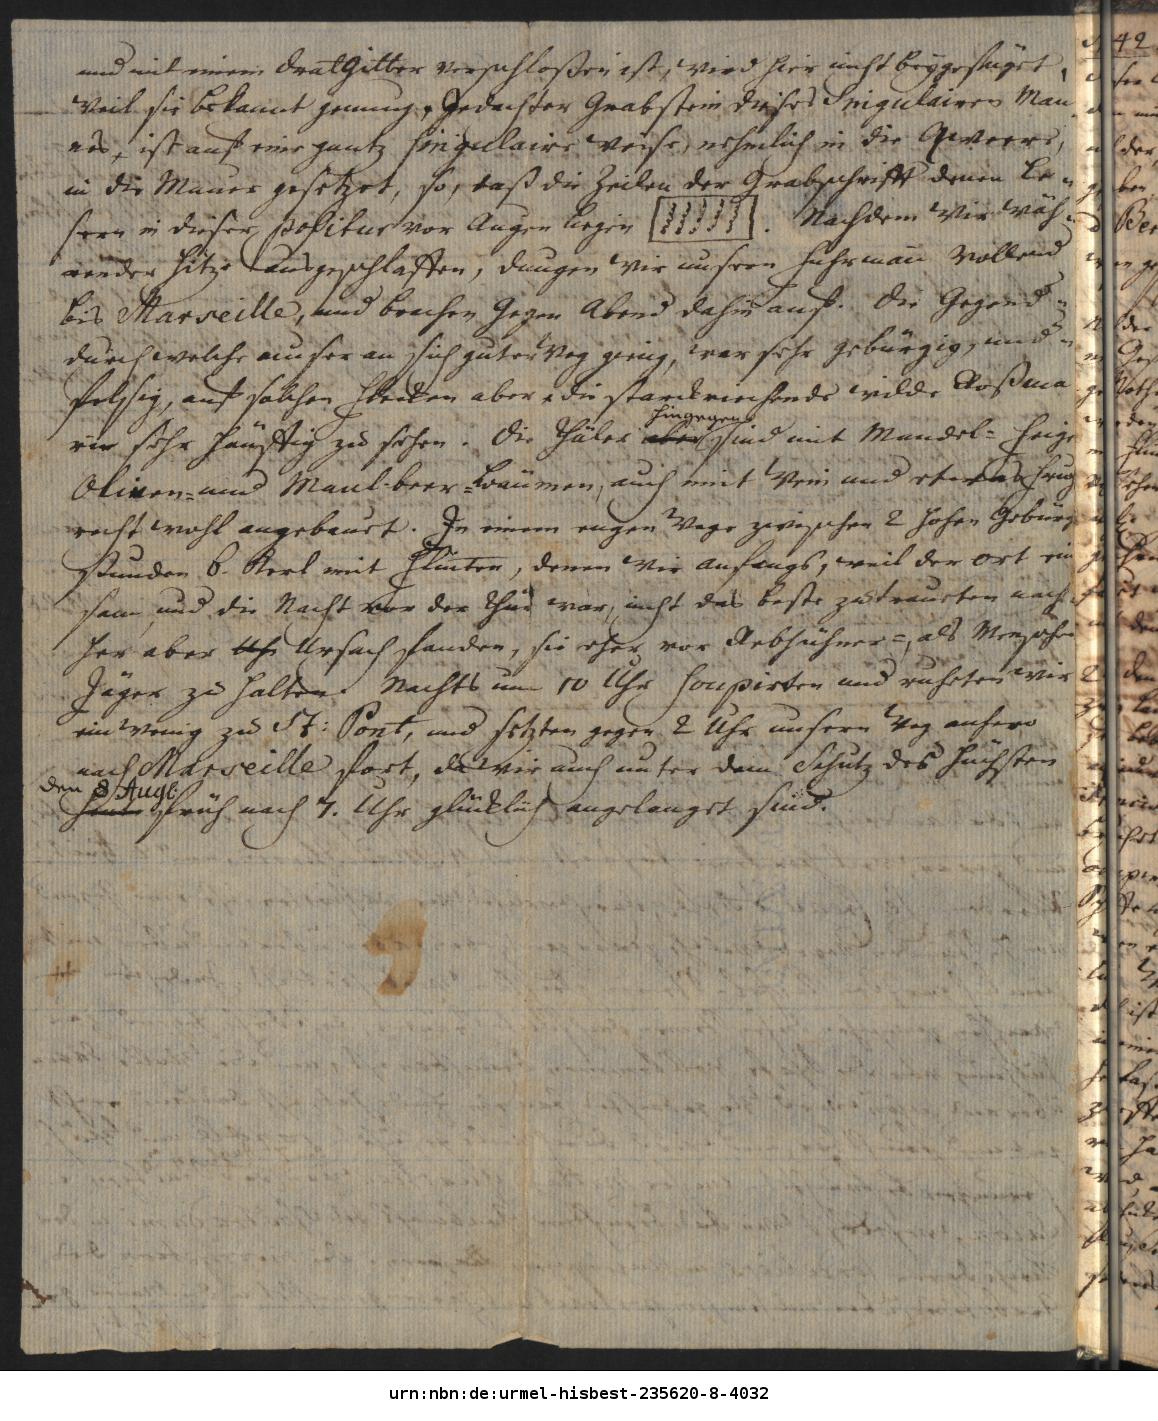 und mit einem dratGitter verschloßen ist, wird hier nicht beygefüget,
weil sie bekannt genung, Gedachter Grabstein dieses Singulairen Man-
nes, ist auf eine gantz singulaire weise, nehmlich in die Qveere,
in die Mauer gesetzet, so, daß die Zeilen der Grabschrifft denen Le-
sern in dieser positur vor Augen liegen. Nachdem wir wäh-
render Hitze ausgeschlaffen, dungen wir unsern Fuhrmann vollend
bis Marseille, und brachen Gegen Abend dahin auf. Die Gegend
durch welche unser an sich guter Weg gieng, war sehr gebürgig, und
felsig, auf solchen Flecken aber die starckriechende wilde Roßma
rin sehr häuffig zu sehen. Die Thäler aber hingegen sind mit Mandel- Feige
Oliven- und Maul-beer-Bäumen, auch mit Wein und etwas
recht wohl angebauet. In einem engen Wege zwischen 2 hohen Gebürg
stunden 6. Kerl mit Flinten, denen wir anfangs, weil der ort ein
sam, und die Nacht vor der Thür war, nicht das beste zutraueten nach
her aber Ursach fanden, sie eher vor Rebhühner-, als Menschen
Jäger zu halten. Nachts um 10 Uhr soupirten und ruheten wir
ein wenig zu St: Pont, und setzten gegen 2 Uhr unsern Weg anhero
nach Marseille fort, da wir auch unter dem Schutz des Höchsten
den 8 Aug:
heute früh nach 7. Uhr glücklich angelanget sind.
42
urn:nbn:de:urmel-hisbest-235620-8-4032